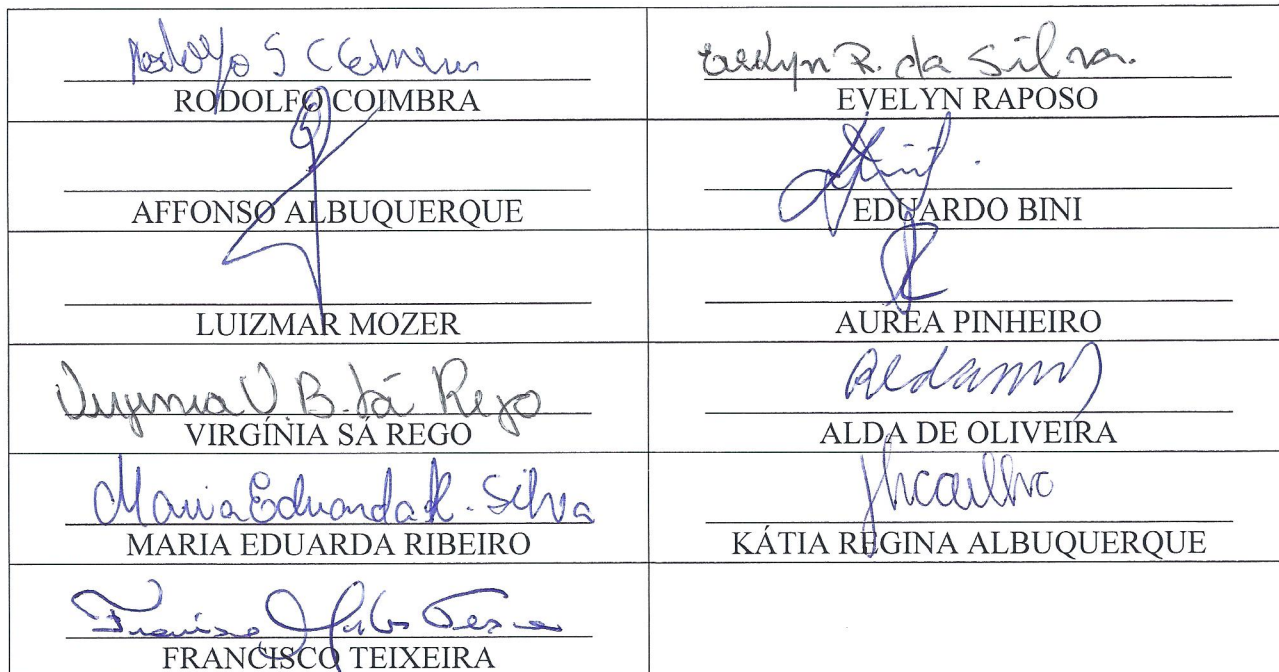 Evelyn R. da Silva.
RODOLFO COIMBRA
EVELYN RAPOSO
AFFONSO ALBUQUERQUE
EDUARDO BINI
LUIZMAR MOZER
AUREA PINHEIRO
Virginia V. B. Sá Rego
VIRGÍNIA SÁ REGO
ALDA DE OLIVEIRA
Maria Eduarda R. Silva
MARIA EDUARDA RIBEIRO
KÁTIA REGINA ALBUQUERQUE
FRANCISCO TEIXEIRA